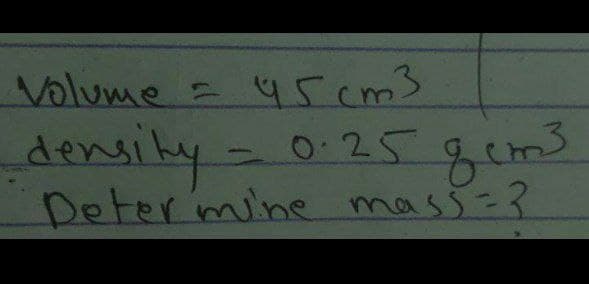 Volume = 45 cm³
density = 0.25 g cm³
Determine mass = ?